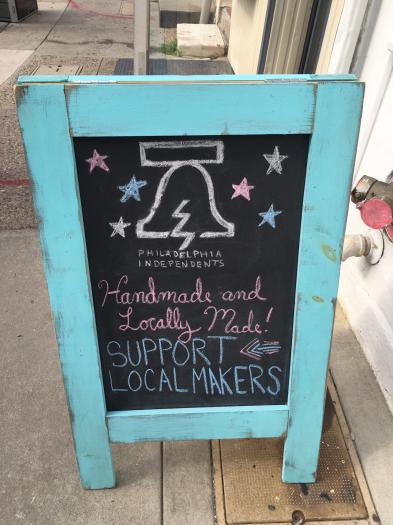 PHILADELPHIA
INDEPENDENTS
Handmade and
Locally Made!
SUPPORT
LOCAL MAKERS